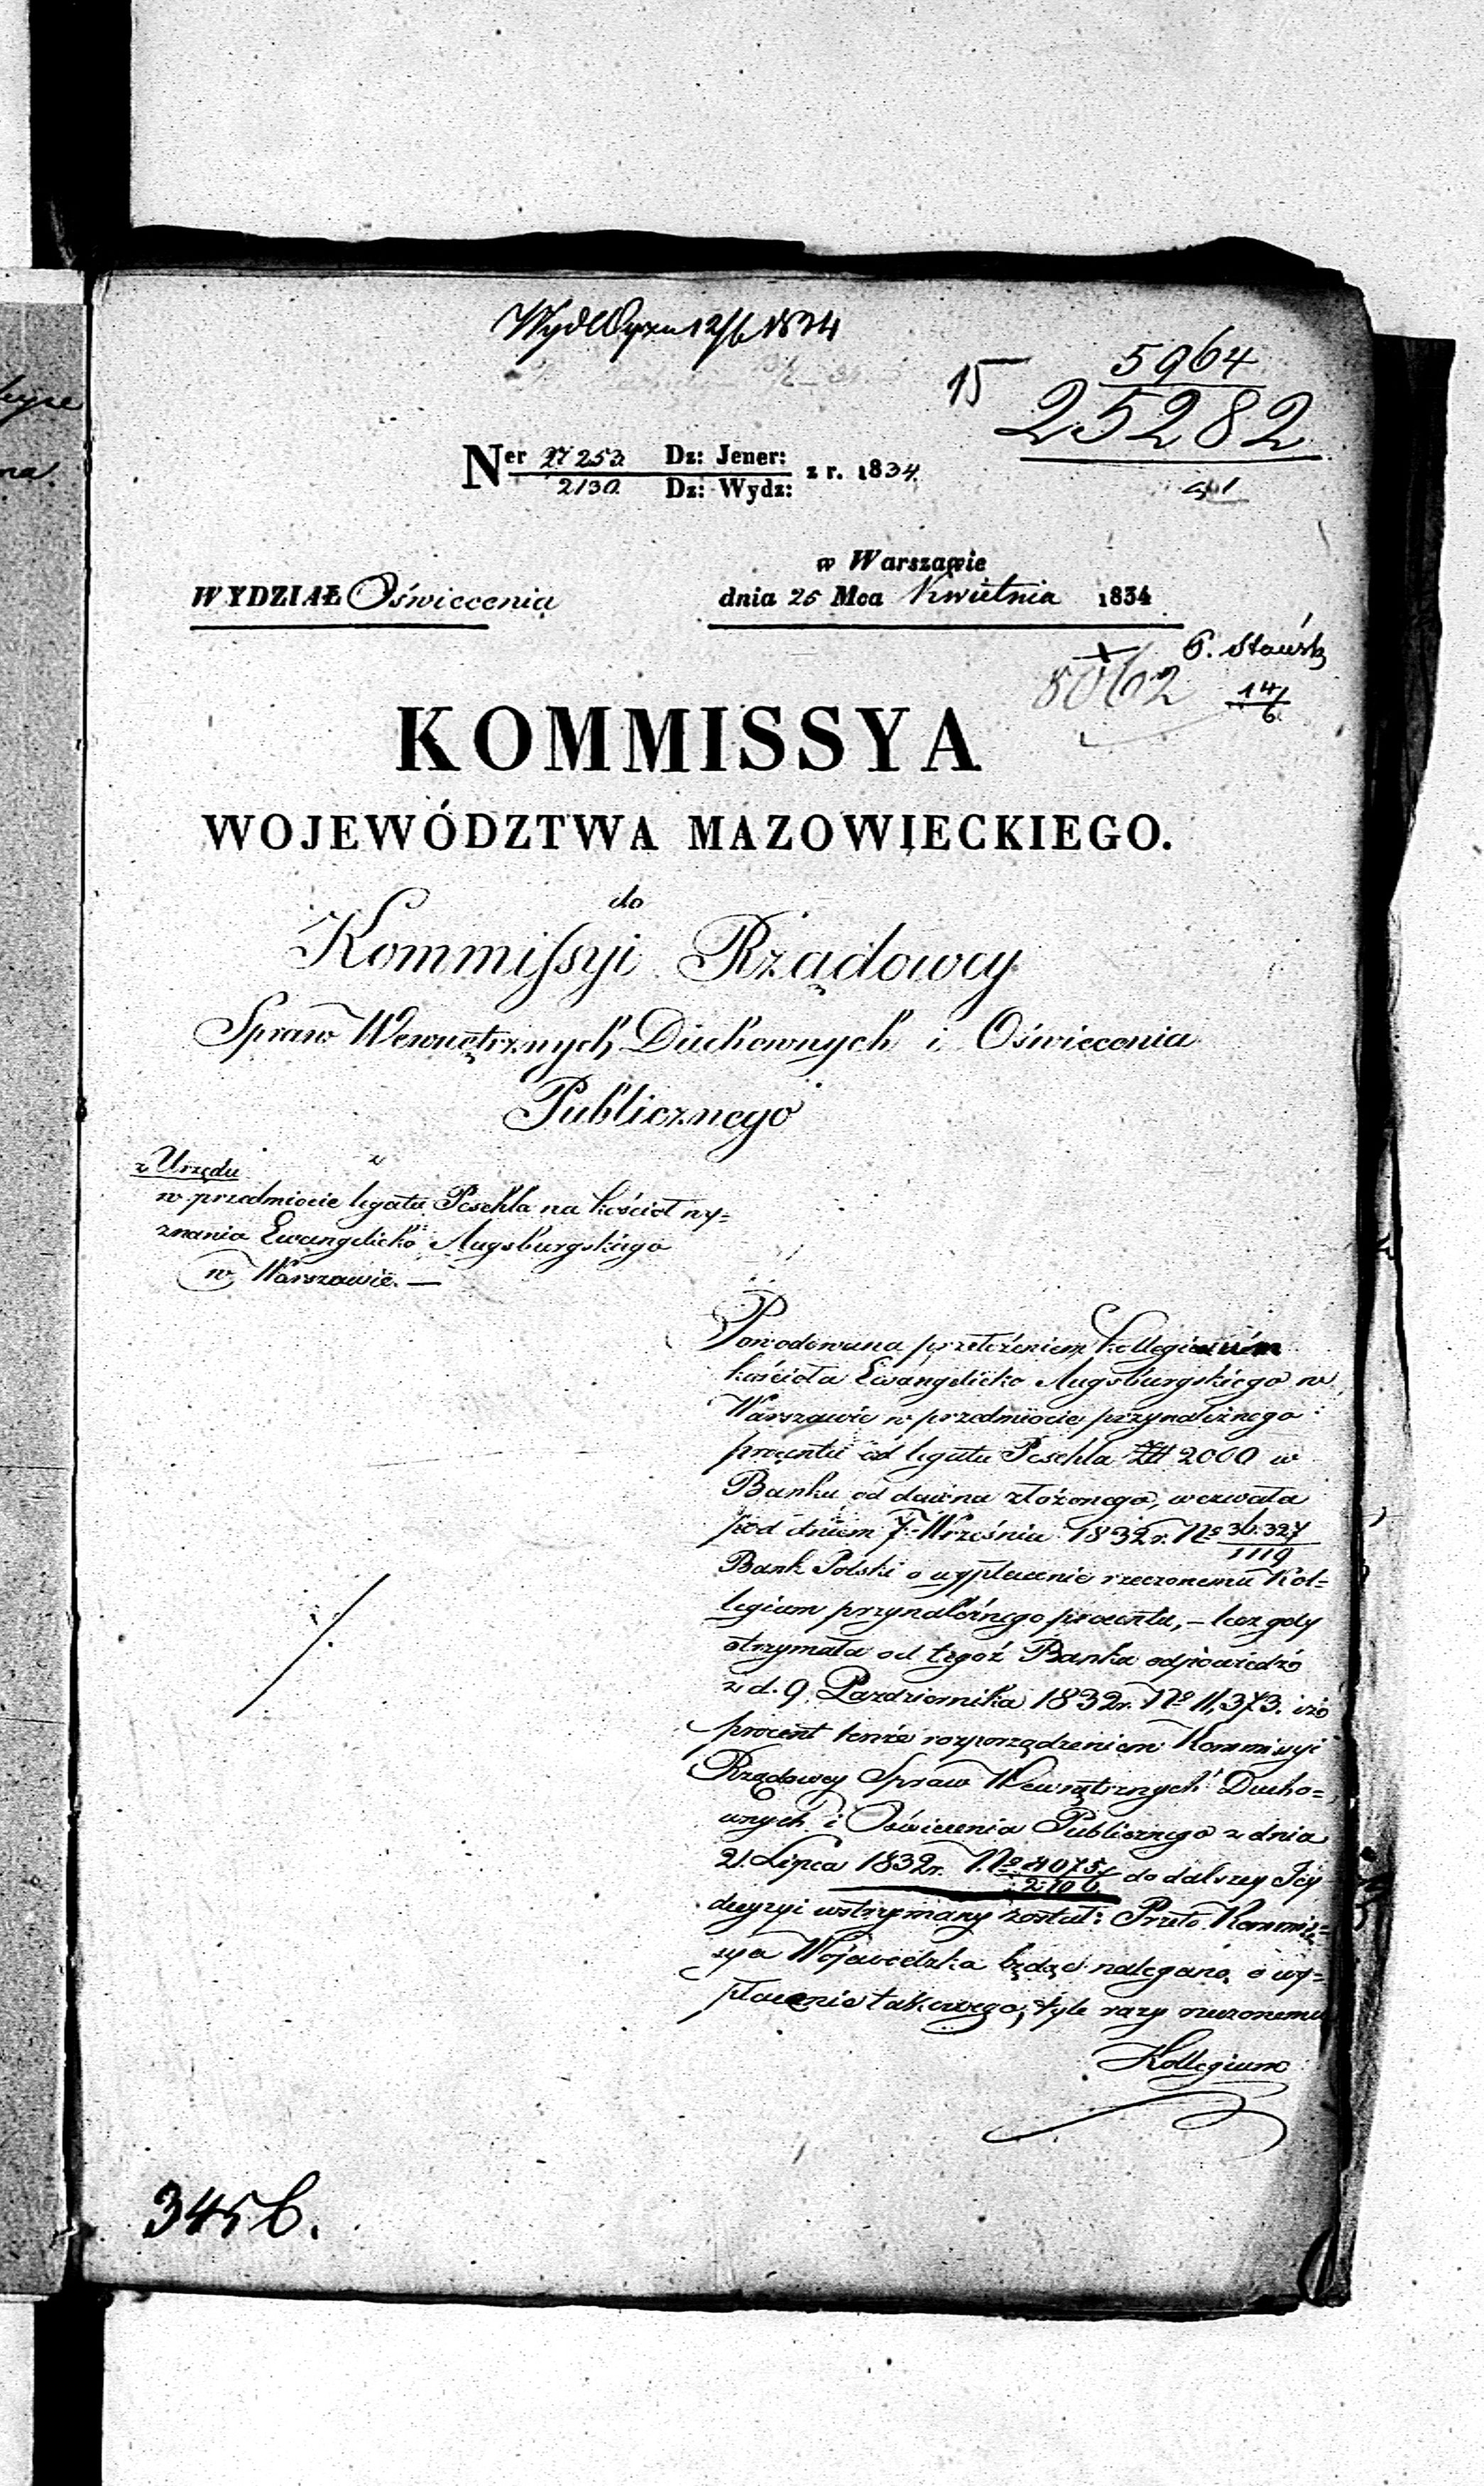 5964
15
25282
Ner 27253. Dz: Jener: z r. 1834.
2130. Dz: Wydz:
w Warszawie
WYDZIAŁ Oświecenia dnia 25 Mca Kwietnia 1834
14/6
KOMMISSYA
WOJEWÓDZTWA MAZOWIECKIEGO.
do
Kommissyi Rządowey
Spraw Wewnętrznych Duchownych i Oświecenia
Publicznego
z Urzędu
w przedmiocie legatu Peschla na kościoł wy=
znania Ewangelicko Augsburgskiego
w Warszawie. —
Powodowana przełożeniem Kollegium
kościoła Ewangelicko Augsburgskiego w
Warszawie w przedmiocie przynależnego
procentu od legatu Peschla 2000 w
Banku od dawna złożonego, wezwała
pod dniem 7. Września 1832 r. No 36.327/1119
Bank Polski o wypłacenie rzeczonemu Kol=
legium przynależnego procentu, – lecz gdy
otrzymała od tegoż Banku odpowiedź
z d. 9. Pazdziernika 1832 r. No 11,373. iż
procent tenże rozporządzeniem Kommissyi
Rządowey Spraw Wewnętrznych Ducho=
wnych i Oświecenia Publicznego z dnia
21. Lipca 1832 r. No do dalszey Jey
decyzyi wstrzymany został: Przeto Kommis=
sya Wojewodzka będąc naleganą o wy=
płacenie takowego, tyle razy rzeczonemu
Kollegium
345b.